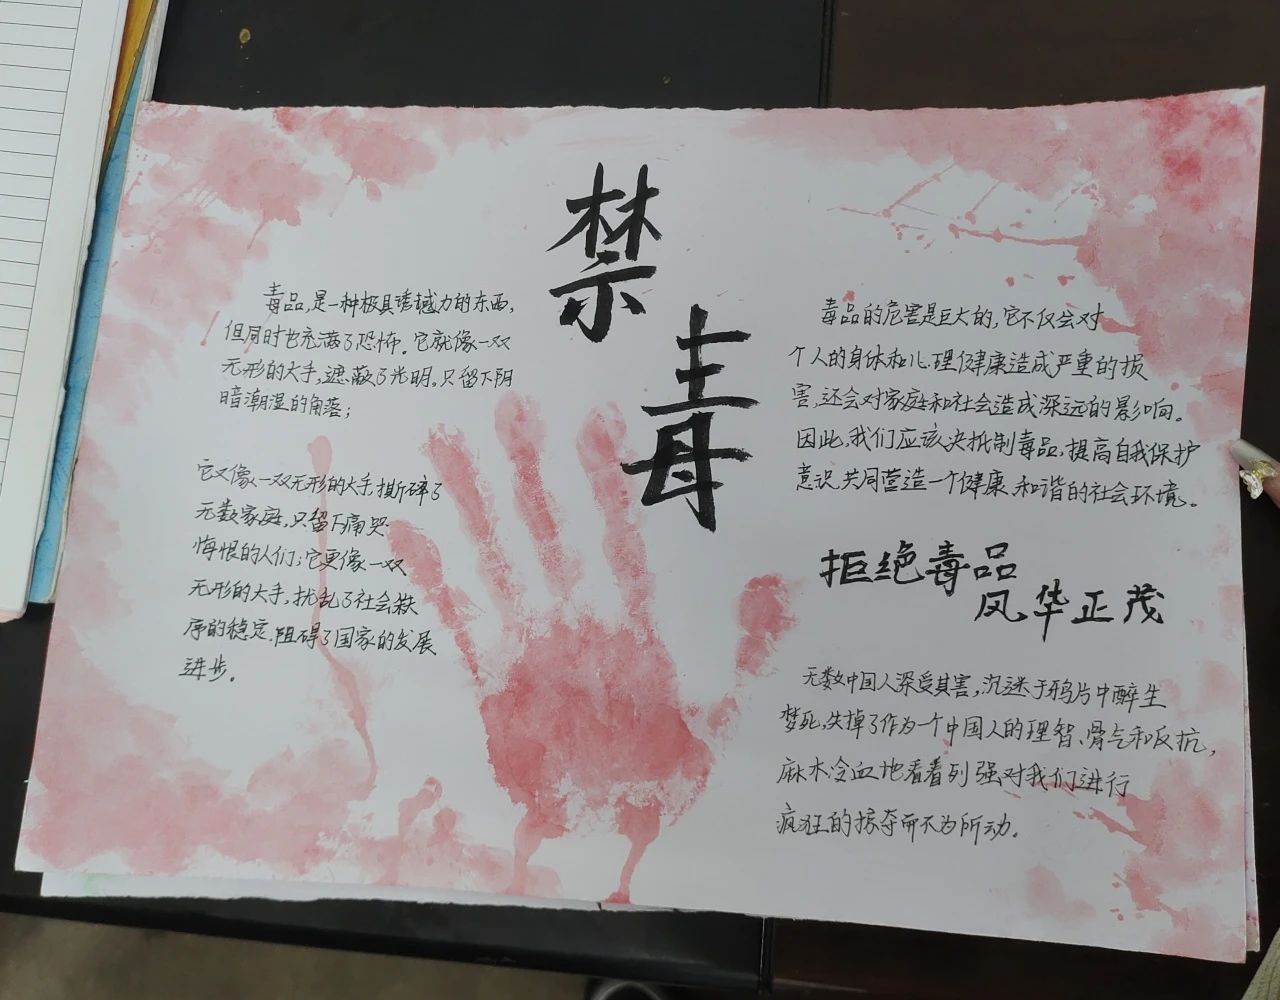 禁
毒
毒品,是一种极具诱撼力的东西,
但同时也充满了恐怖。它就像一双
无形的大手,遮蔽了光明,只留下阴
暗潮湿的角落;
它又像一双无形的大手,撕碎了
无数家庭,只留下痛哭
悔恨的人们;它更像一双
无形的大手,扰乱了社会秩
序的稳定,阻碍了国家的发展
进步。
毒品的危害是巨大的,它不仅会对
个人的身体和心理健康造成严重的损
害,还会对家庭和社会造成深远的影响。
因此,我们应该决抵制毒品,提高自我保护
意识,共同营造一个健康、和谐的社会环境。
拒绝毒品
风华正茂
无数中国人深受其害,沉迷于鸦片中醉生
梦死,失掉了作为一个中国人的理智、骨气和反抗,
麻木冷血地看着列强对我们进行
疯狂的掠夺而不为所动。